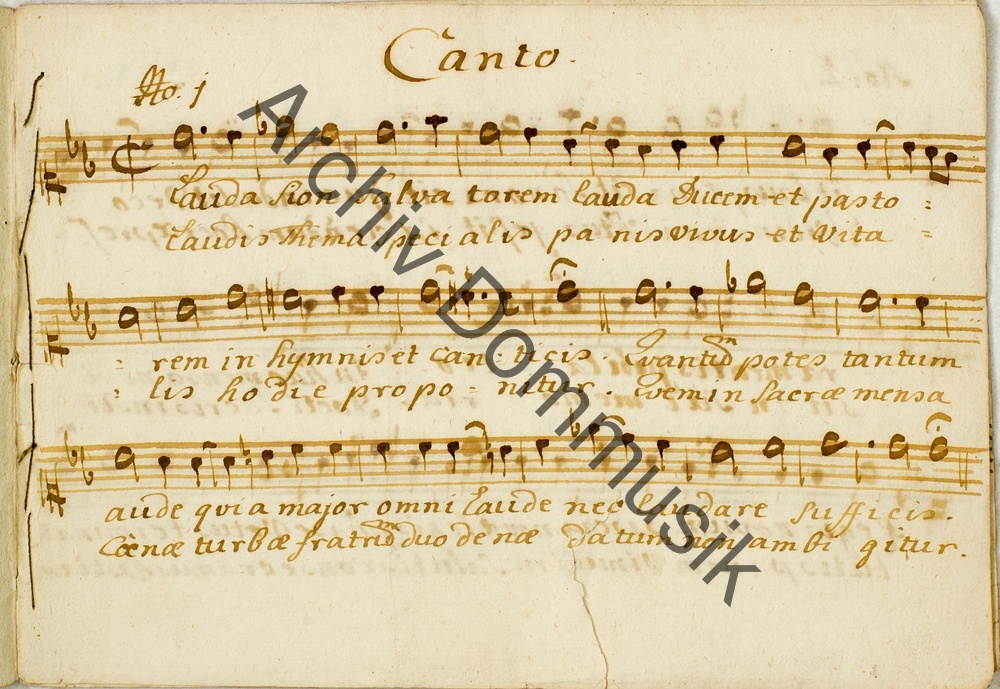 Canto.
No. 1
Lauda Sion Salva torem lauda Ducem et pasto :
Laudis thema speci alis pa nis vivus et vita =
: rem in hymnis et can- ticis. Quantũm potes tantum
: lis ho die propo = nitur. Quem in sacræ mensa
aude qvia major omni laude nec laudare sufficis.
Cœnæ turbæ fratrũm duo denæ datum non ambi gitur.
Archiv Dommusik